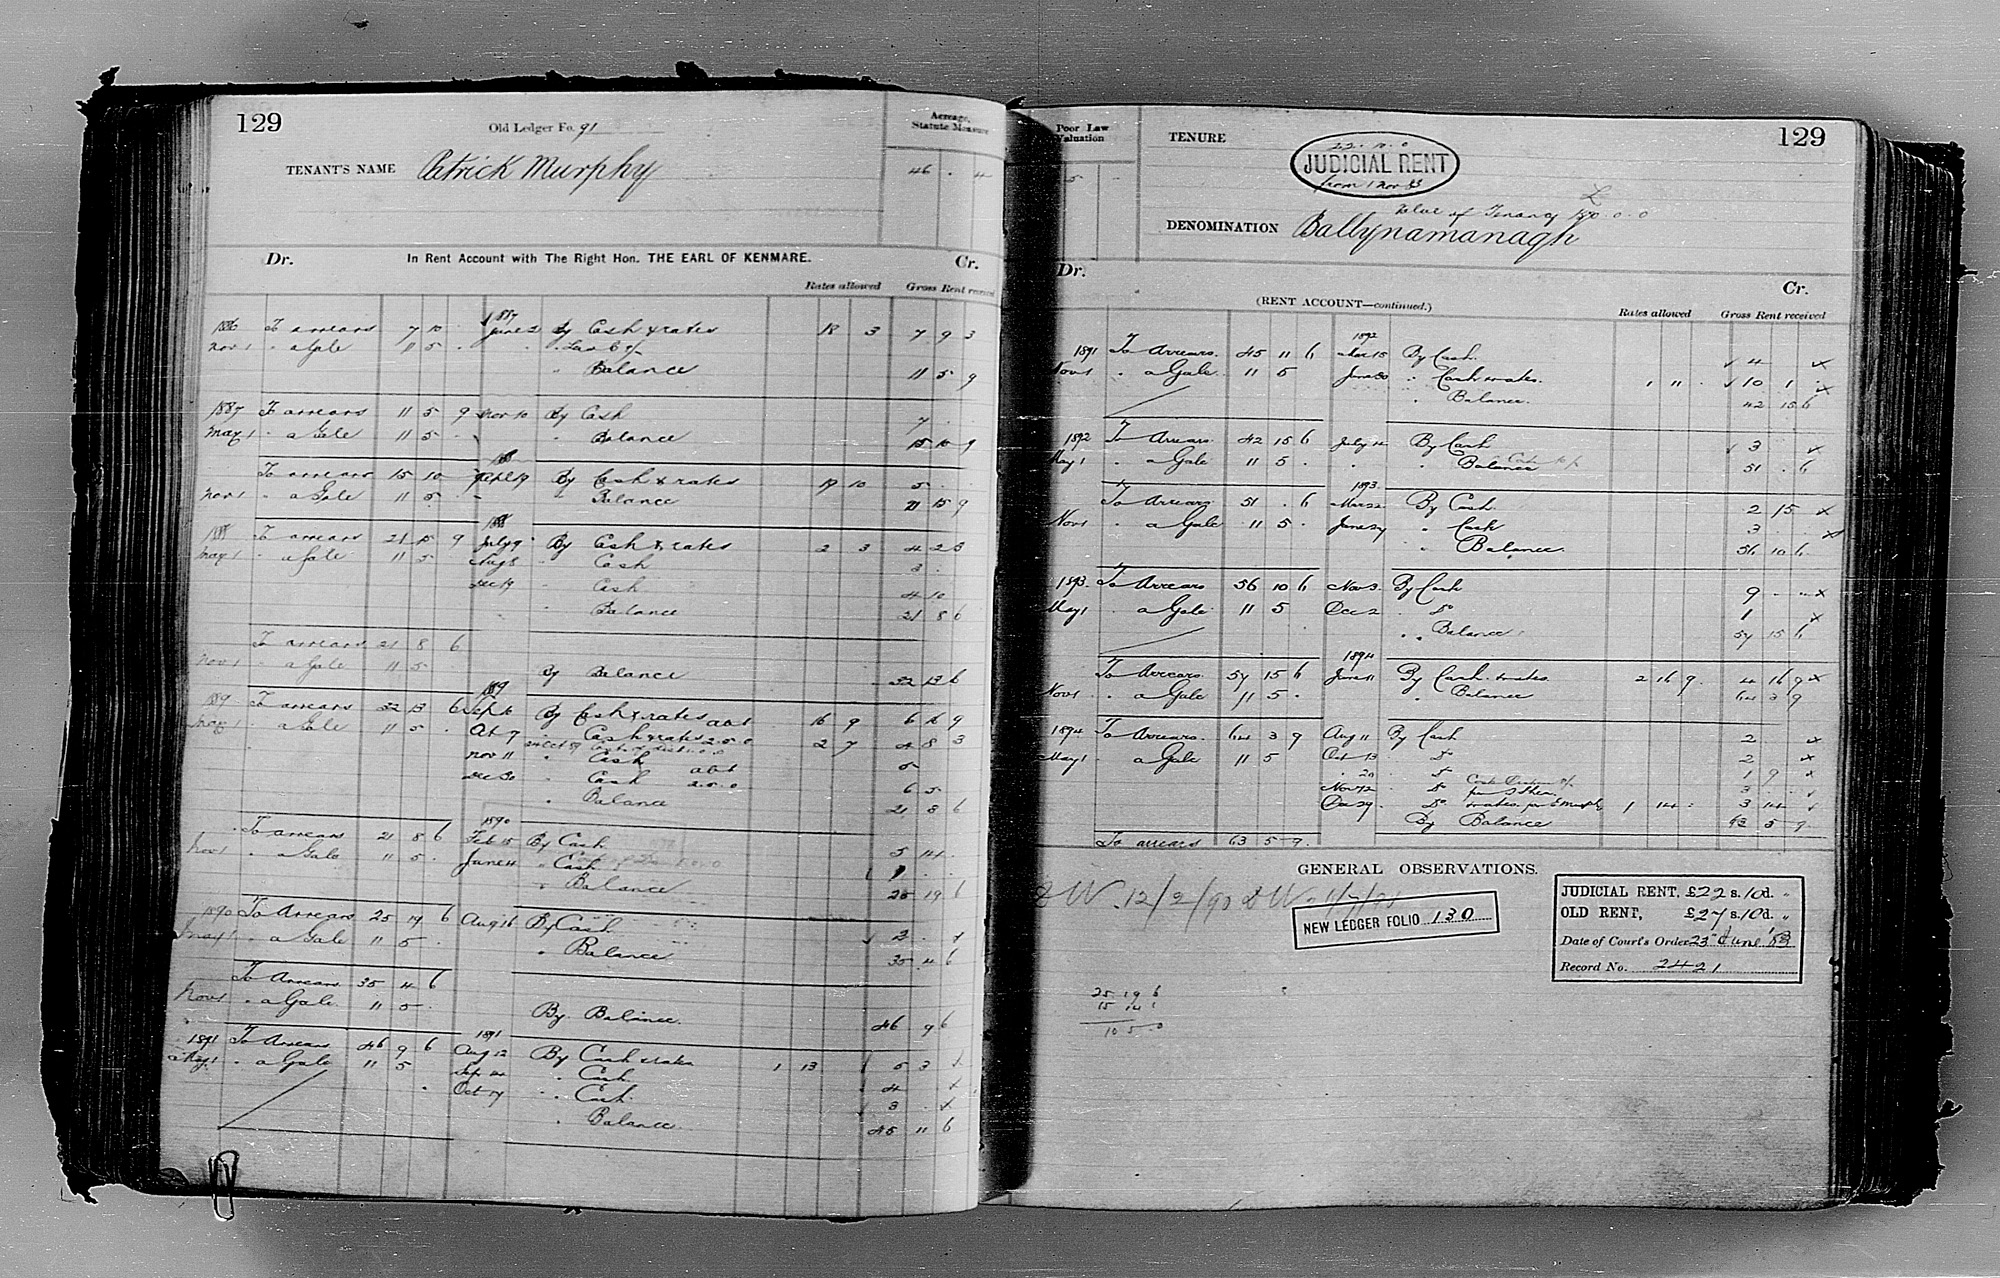 129
Old Ledger Fo. 91
Acreage, Statute Measure
TENANT'S NAME Patrick Murphy
46 . 4
Dr. In Rent Account with The Right Hon. THE EARL OF KENMARE. Cr.
Rates allowed Gross Rent received
1886 To arrears 7 10 . 1887 June 2 By Cash & rates 18 3 7 9 3
Nov 1 " a Gale 11 5 .
" Balance 11 5 9
1887 To arrears 11 5 9 Nov 10 By Cash 7 . .
May 1 " a Gale 11 5 . " Balance 15 10 9
To arrears 15 10 By Cash & rates 19 10 5 . .
Nov 1 " a Gale 11 5 . " Balance 21 15 9
1888 To arrears 21 15 9 July 9 By Cash & rates 2 3 4 2 3
May 1 " a Gale 11 5 Aug 8 " Cash 3 .
Dec 19 " Cash 4 10
" Balance 21 8 6
To arrears 21 8 6
Nov 1 " a Gale 11 5 By Balance 32 13 6
1889
1889 To arrears 32 13 6 Sept 6 By Cash & rates 16 9 6 16 9
May 1 " a Gale 11 5 . Oct 7 " Cash & rates 2.5.0 2 7 4 8 3
Nov 11 " Cash 5
Dec 30 " Cash 2.5.0 6 5
" Balance 21 8 6
1890
To arrears 21 8 6 Feb 15 By Cash 5 14 .
Nov 1 " a Gale 11 5 . June 4 " Cash 1 . .
" Balance 25 19 6
1890 To Arrears 25 19 6 Aug 16 By Cash 2 . x
May 1 " a Gale 11 5 . " Balance 35 4 6
To Arrears 35 4 6
Nov 1 " a Gale 11 5 . By Balance 46 9 6
1891
1891 To Arrears 46 9 6 Aug 12 By Cash & rates 1 13 5 3 x
May 1 " a Gale 11 5 " Cash 4 x
Oct 17 " Cash 3 . x
" Balance 45 11 6
Poor Law Valuation
TENURE
22.10.0
JUDICIAL RENT
from 1 Nov 83
129
Value of Tenancy
DENOMINATION Ballynamanagh
Dr. (RENT ACCOUNT—continued.) Cr.
Rates allowed Gross Rent received
1892
1891 To Arrears 45 11 6 Mar 15 By Cash 4 x
Nov 1 " a Gale 11 5 June 30 " Cash & rates 1 " . 10 1 . x
" Balance 42 15 6
1892 To Arrears 42 15 6 July 12 By Cash 3 x
May 1 " a Gale 11 5 . " Balance 51 . 6
1893
To Arrears 51 . 6 Mar 22 By Cash 2 15 x
Nov 1 " a Gale 11 5 . June 27 " Cash 3 . x
" Balance 56 10 6
1893 To Arrears 56 10 6 Nov 3 By Cash 9 . . x
May 1 " a Gale 11 5 Dec 2 " Do 1 x
" Balance 57 15 6
1894
To Arrears 57 15 6 June 11 By Cash & rates 2 16 9 4 16 9 x
Nov 1 " a Gale 11 5 . " Balance 64 3 9
1894 To Arrears 64 3 9 Aug 11 By Cash 2 x
May 1 " a Gale 11 5 Oct 13 " Do 2 x
" 20 " Do 1 9 x
Nov 12 " Do 3 .
Dec 29 " Do & rates per E Murphy 1 14 . 3 14
By Balance 63 5 9
To arrears 63 5 9
GENERAL OBSERVATIONS.
DW. 12/2/90
NEW LEDGER FOLIO 130
JUDICIAL RENT, £22 s. 10d. "
OLD RENT, £27 s. 10d. "
Date of Court's Order 23rd June '83
Record No. 2421
25 19 6
15 14 6
10 5 0